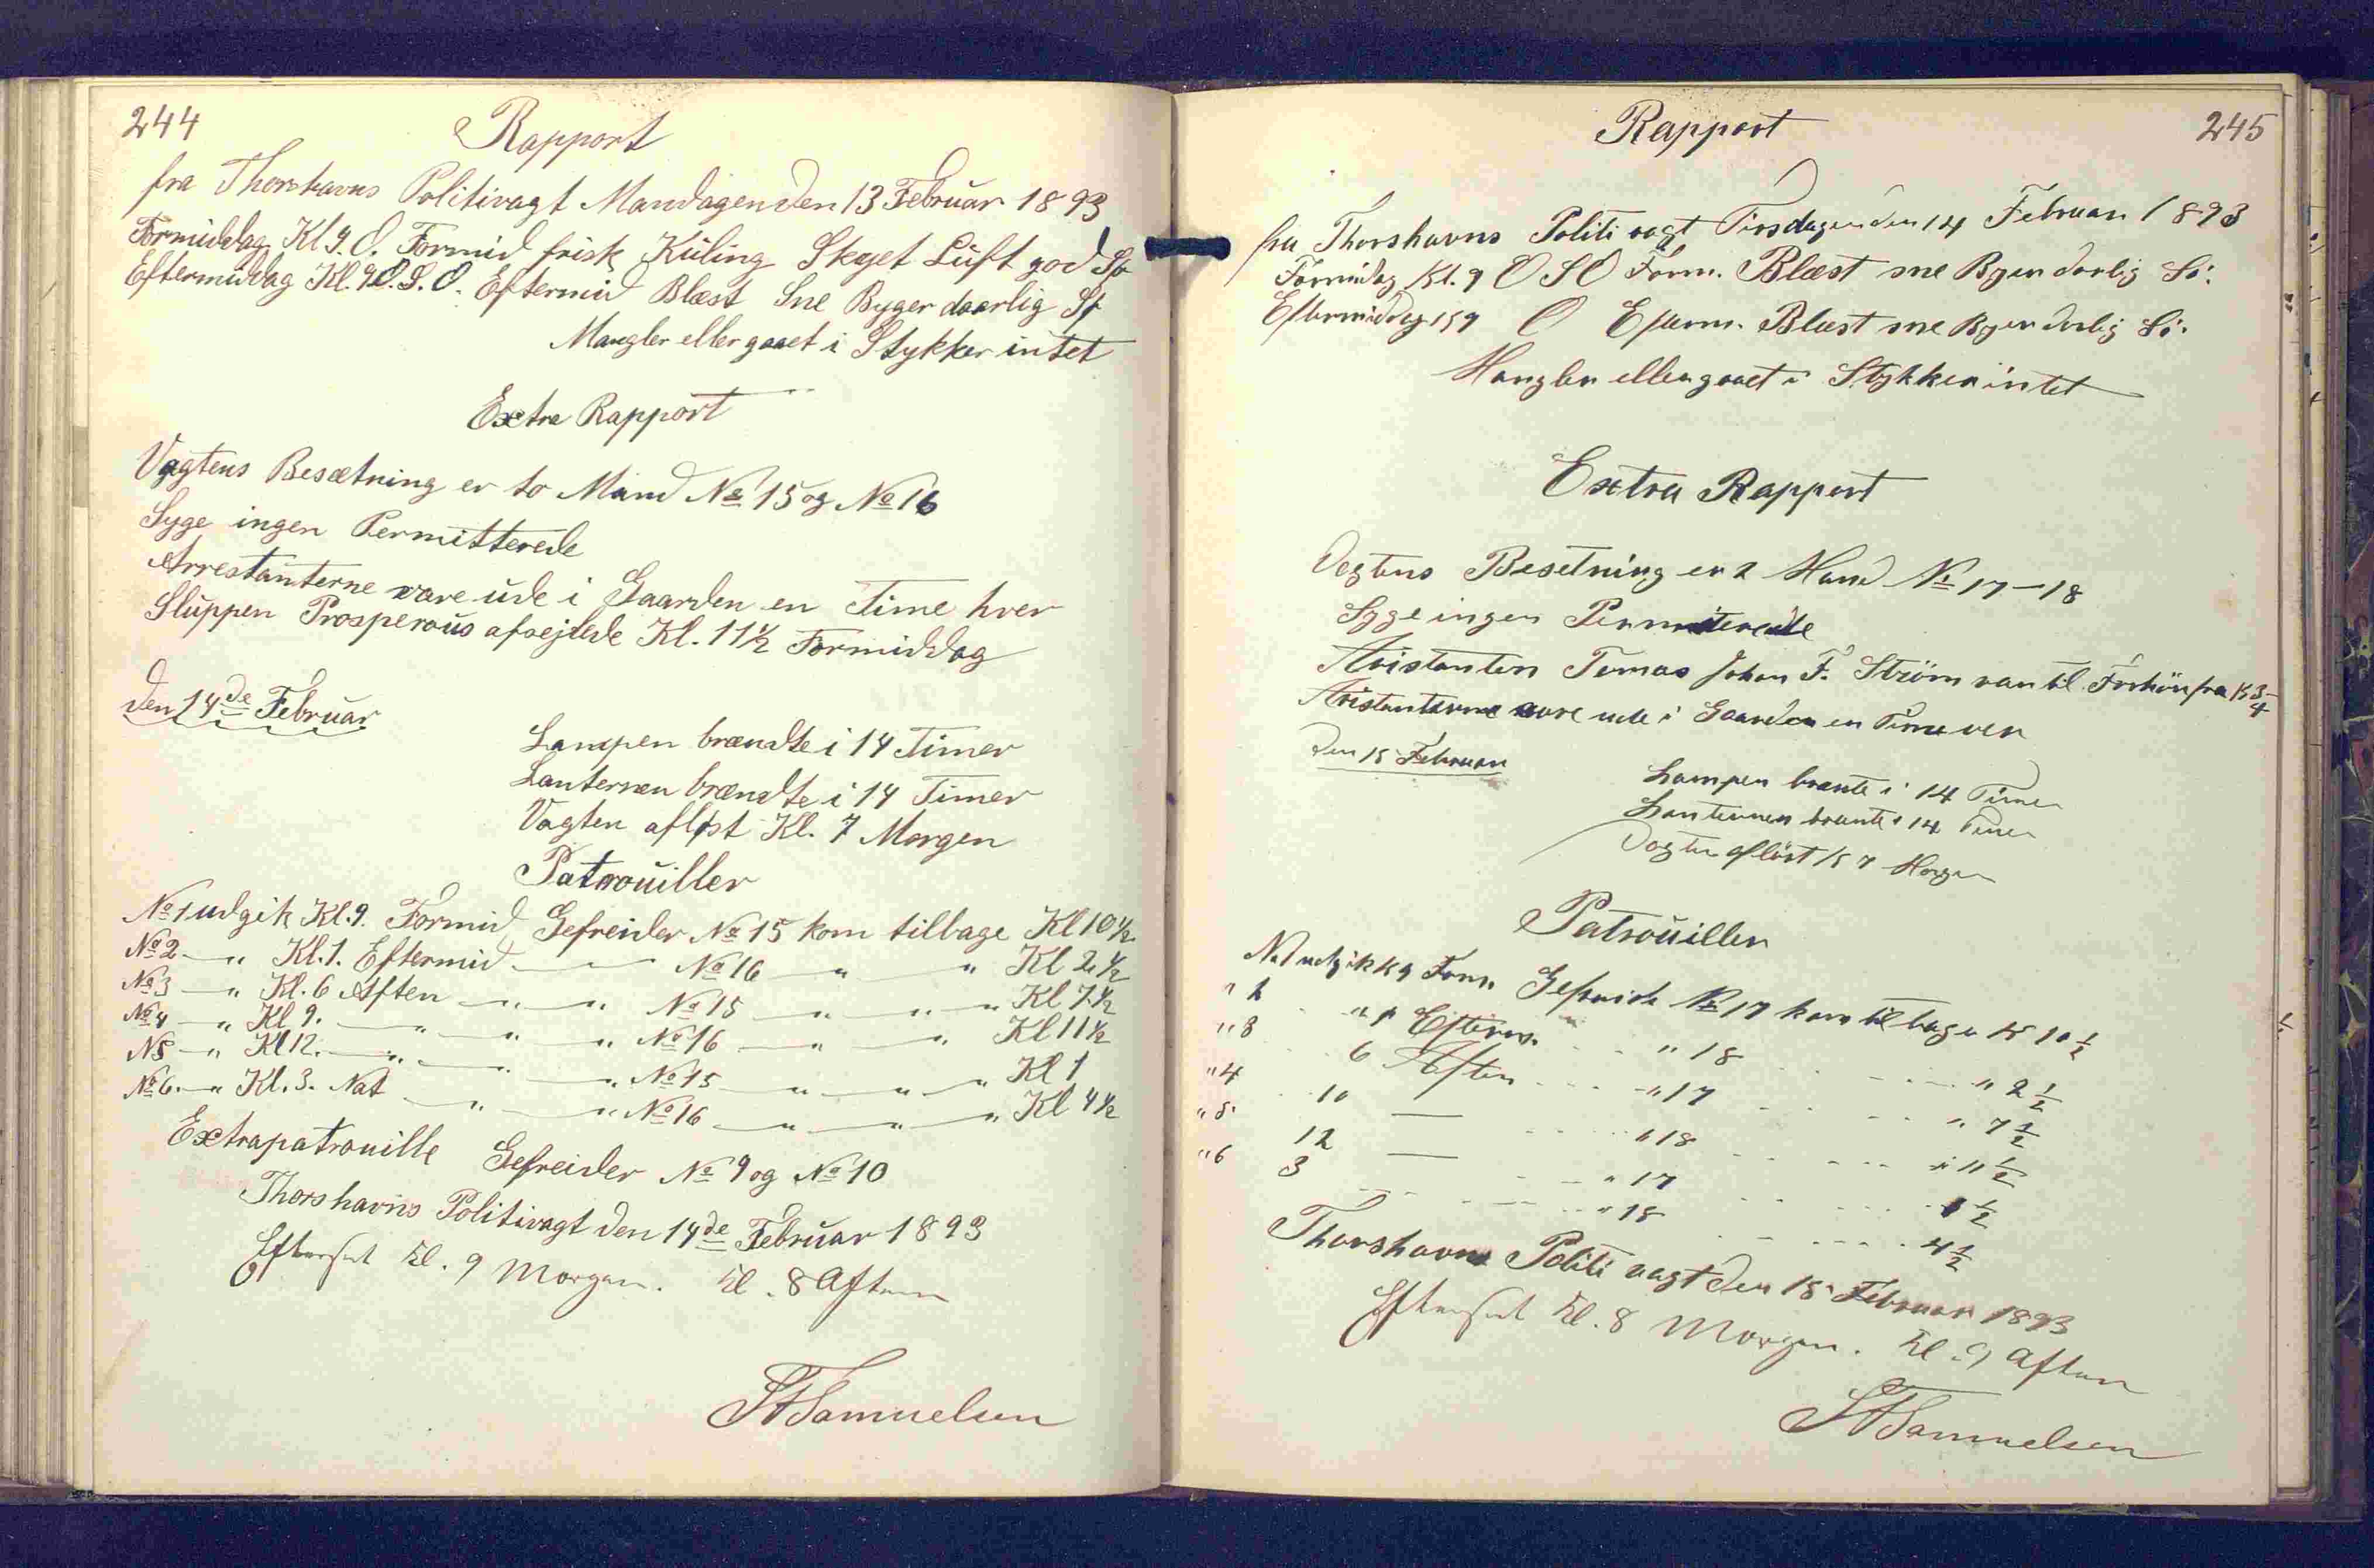 244
Rapport
fra Thorshavns Politivagt Mandagen den 13 Februar 1893
Formiddag Kl. 9. O. Formid frisk Kuling Skyet Luft god Sø
Eftermiddag Kl. 9 O.S.O. Eftermid Blæst Sne Byger daarlig Sø
Mangler eller gaaet i Stykker intet
Extra Rapport
Vagtens Besætning er to Mand No 15 og No 16
Syge ingen Permitterede
Arrestanterne vare ude i Gaarden en Time hver
Sluppen Prosperous afsejlede Kl. 11 1/2 Formiddag
den 14de Februar
Lampen brændte i 14 Timer
Lanternen brændte i 14 Timer
Vagten afløst Kl. 7 Morgen
Patrouiller
No 1 udgik Kl. 9. Formid Gefreider No 15 kom tilbage Kl 10 1/2
No 2 — " Kl. 1. Eftermid — No 16 — " " Kl 2 1/2
No 3 — " Kl. 6 Aften — " — " No 15 — " — " — " Kl 7 1/2
No 4 — " Kl 9. — " — " — " No 16 — " — " Kl 11 1/2
N 5 — " Kl 12. — " — " — " No 15 — " — " — " Kl 1
No 6. — " Kl. 3. Nat — " — " No 16 — " — " — " Kl 4 1/2
Extrapatrouille Gefreider No 9 og No 10
Thorshavns Politivagt den 14de Februar 1893
Efterset Kl. 9 Morgen. Kl. 8 Aften
Samuelsen
245
Rapport
fra Thorshavns Politi vagt Tirsdagen den 14 Februar 1893
Formidag Kl. 9 O S O Form. Blæst sne Byer dorlig Sö:
Eftermiddag Kl 9 O Efterm. Blæst sne Byer dorlig Sö:
Mangler eller gaaet i Stykker intet
Extra Rapport
Vegtens Besetning er 2 Mand No 17 — 18
Syge ingen Permiterede
Aristanten Tomas Johan F. Ström var til Forhör fra Kl 3–4
Aristanterne vare ude i Gaarden en Time ver
Den 15 Februar
Lampen brante i 14 Timer
Lanternen brante i 14 Timer
Vagten aflöst Kl 7 Morgen
Patrouiller
N. 1 udgik Kl 9 Form Gefreide No 17 kom til bage Kl 10 1/2
" 2 " 1 Efterm. " 18 " 2 1/2
" 3 6 Aften " 17 " 7 1/2
" 4 10 — " 18 " 11 1/2
" 5 12 — " 17 1 1/2
" 6 3 " 18 4 1/2
Thorshavns Politi vagt den 15 Februar 1893
Efterset Kl. 8 Morgen. Kl. 9 Aften
Samuelsen